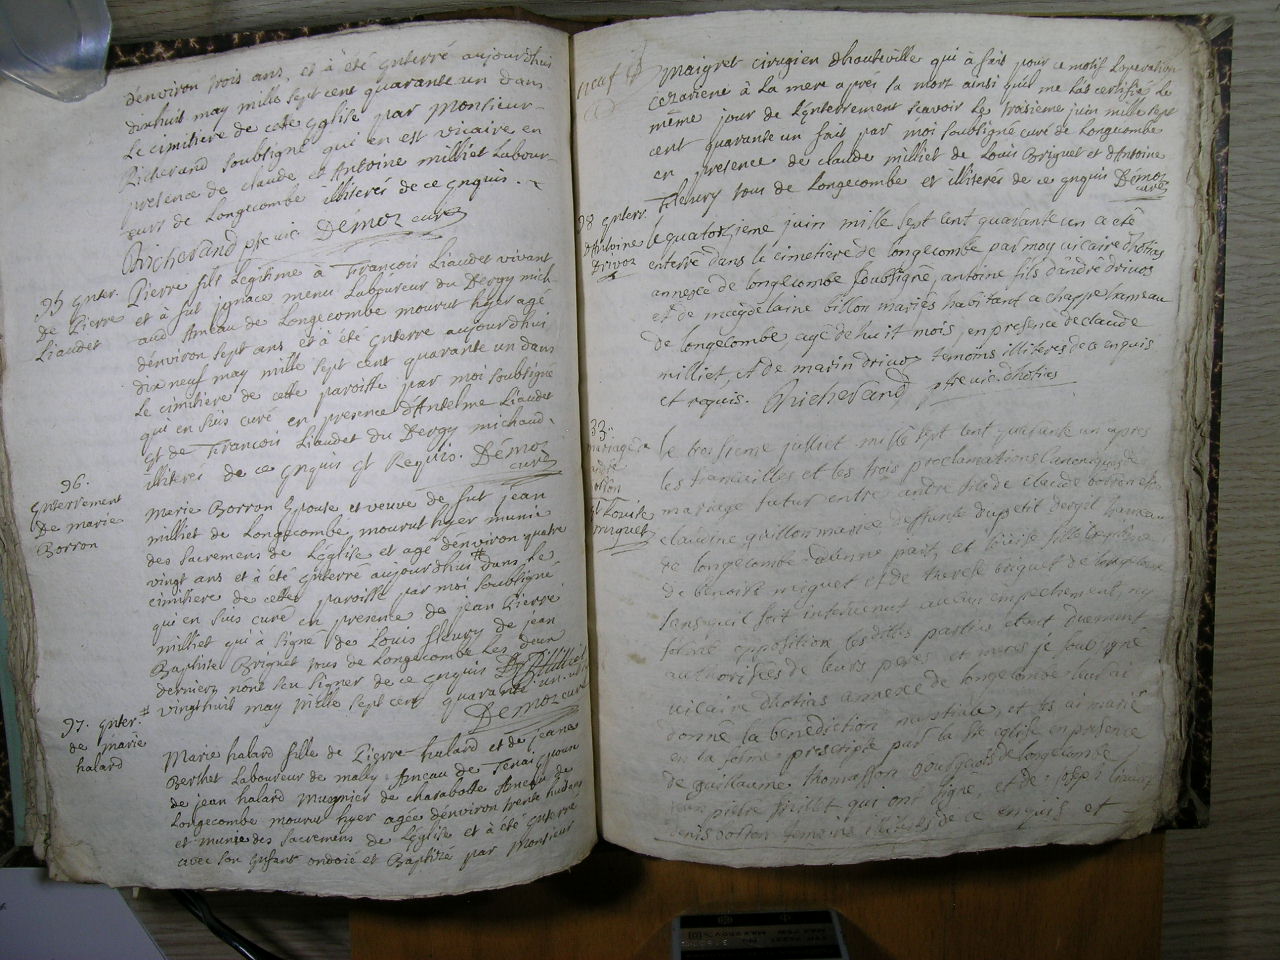 dénviron trois ans, et à été gnterré aujourdhui
dixhuit may mille sept cent quarante un dans
Le cimitiere de cette gglise par Monsieur
Richerand soubsigné qui en est vicaire en
presence de claude et Antoine milliet Labour-
eurs de Longecombe illiterés de ce gnquis.
Richerand ptre vic. Démoz curé
95 gnter.
de Pierre
Liaudet
Pierre fils Legitime à François Liaudet vivant
et à fut jgnace menu Laboureur du Dergy mich
aud Ameau de Longecombe mourut hyer agé
dénviron sept ans et à été gnterré aujourdhui
dix neuf may mille sept cent quarante un dans
Le cimitiere de cette paroisse par moi soubsigné
qui en suis curé en presence d'Antelme Liaudet
et de François Liaudet du Dergy michaud-
illiterés de ce gnquis et Requis. Démoz
curé
96.
gnterrement
de marie
Borron
marie Borron Epouse et veuve de fut jean
milliet de Longecombe, mourut hyer munie
des sacremens de Léglise et agé dénviron quatre
vingt ans et à été gnterré aujourdhui # dans Le
cimitiere de cette paroisse par moi soubsigné
qui en suis curé en presence de jean Pierre
milliet qui à signé de Louis fleury de jean
Baptiste Briguet tous de Longecombe Les deux
derniers nont sçu signer de ce gnquis
# vingthuit may mille sept cent quarante un
Démoz curé
97. gnter.
de marie
halard
Marie halard fille de Pierre halard et de jeane
Berthet Laboureur de mally Ameau de Tenay
de jean halard Mugnier de charabotte Ameau de
Longecombe mourut hyer agée dénviron trente
et munie des sacremens de Léglise et à été gnterré
avec son gnfant ondoié et Baptisé par Monsieur
Maigret cirugien dhouteville qui à fait pour ce motif Loperation
cezariene à La mere aprés sa mort ainsi quil me Lat certifié Le
même jour de Lgnterrement scavoir Le troisieme juin mille sept
cent quarante un fait par moi soubsigné curé de Longecombe
en presence de claude milliet de Louis Briguet et d'Antoine
Fleury tous de Longecombe et illiterés de ce gnquis Démoz
curé
98 gnterr.
d'Antoine
Drivoz
le quatorzieme juin mille sept cent quarante un a eté
enterré dans le cimetiere de longecombe par moy vicaire dhotias
annexe de longecombe soubsigné antoine fils d'andré drivoz
et de magdelaine billon mariés habitant a chappe hameau
de longecombe agé de huit mois, en presence de claude
milliet, et de marin drivoz temoins illiteres de ce enquis
et requis. Richerand ptre vic. dhotias
33.
mariage
et Louise
miguet
le troisieme julliet mille sept cent quarante un apres
les fiancailles et les trois proclamations canoniques de
mariage futur entre andré fils de claude
claudine guillon mariés du petit dergit hameau
de longecombe d'une part, et louise fille legitime
de benoist miguet et de therese briguet de longecombe
sans quil soit intervenut aucun empechement, ny
formé opposition les dittes parties etant duement
authorisées de leurs peres et meres je soubsigné
vicaire dhotias annexe de longecombe leur ai
donné la benediction nuptiale, et les ai marié
en la forme prescripte par la ste eglise en presence
de guillaume thomasson bourgeois de longecombe
qui ont signé, et de joseph
temoins illiteres de ce enquis et